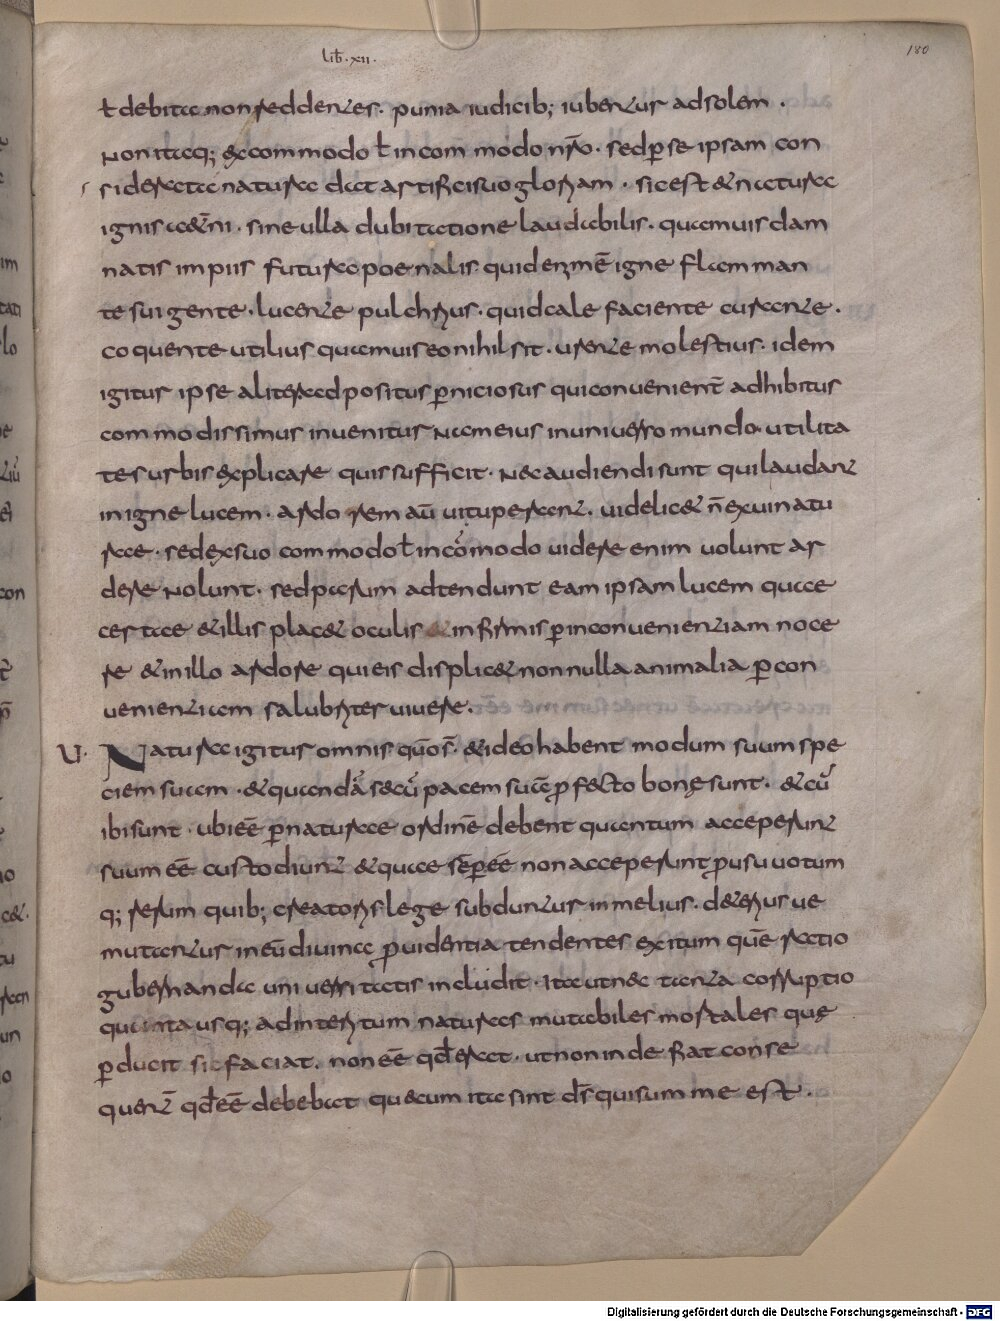 lib̄·xii·
180
ł debita non reddentes. puniri iudicib; iubentur adsolem .
Non itaq; ex commodo ł incommodo nr̄o. sed ꝑ se ipsam con
siderata natura dat artifici suo gloriam . sic est & natura
ignis aet̄ni . sine ulla dubitatione laudabilis. quamuis dam
natis impiis futura poenalis quid enī mē igne flamman
te uigente . lucente pulchrius . quid calefaciente curante .
coquente utilius quamuis eo nihil sit . urente molestius . idem
igitur ipse aliter adpositus ꝑniciosus qui conuenient̄ adhibitus
commodissimus inuenitur Nam eius in uniuerso mundo utilita
tes urbis explicare quis sufficit. Nec audiendi sunt qui laudant
in igne lucem . ardorem aū uituperant . uidelic& ñ ex ui natu
rae . sed ex suo commodo ł incōmodo uidere enim uolunt ar
dere Nolunt . sed parum adtendunt eam ipsam lucem quae
certae & illis plac& oculis & infirmis ꝑ inconuenientiam noce
re & in illo ardore qui eis displic& nonnulla animalia ꝑ con
uenientiam salubriter uiuere .
V. Natura igitur omnis qūos̄ . & ideo habent modum suum spe
ciem suam . & quandā secū pacem suā ꝓfecto bonę sunt . & cū
ibi sunt . ubi eē ꝑ naturae ordinē debent quantum acceperunt
suum eē custodiunt & quae sēꝑ eē non acceperunt ꝓ usu uotum
q; rerum quib; creatoris lege subduntur in melius . deteriusue
mutantur in eū diuina ꝓuidentia tendentes exitum quē ratio
gubernandae uniuersitatis includit . Ita ut nec tanta corruptio
quanta usq; ad interitum naturas mutabiles mortales quę
ꝑducit sic faciat . non eē qd̄ erat . ut non inde fiat conse
quent̄ qd̄ eē debebat quae cum ita sint dr̄ qui summe est .
Digitalisierung gefördert durch die Deutsche Forschungsgemeinschaft - DFG